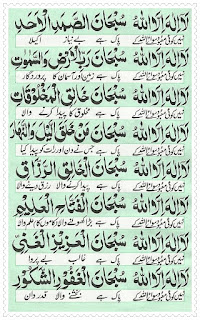 لَا إِلٰهَ إِلَّا اللهُ سُبْحَانَ الصَّمَدِ الْاَحَدِ
نہیں کوئی معبود سوائے اللہ کے پاک ہے بے نیاز اکیلا
لَا إِلٰهَ إِلَّا اللهُ سُبْحَانَ رَبِّ الْاَرْضِ وَالسَّمٰوٰتِ
نہیں کوئی معبود سوائے اللہ کے پاک ہے زمین اور آسمان کا پروردگار
لَا إِلٰهَ إِلَّا اللهُ سُبْحَانَ خَالِقِ الْمَخْلُوْقَاتِ
نہیں کوئی معبود سوائے اللہ کے پاک ہے مخلوق کا پیدا کرنے والا
لَا إِلٰهَ إِلَّا اللهُ سُبْحَانَ مَنْ خَالِقِ اللَّيْلِ وَالنَّهَارِ
نہیں کوئی معبود سوائے اللہ کے پاک ہے جس نے دن اور رات کو پیدا کیا
لَا إِلٰهَ إِلَّا اللهُ سُبْحَانَ الْخَالِقِ الرَّزَّاقِ
نہیں کوئی معبود سوائے اللہ کے پاک ہے پیدا کرنے والا رزق دینے والا
لَا إِلٰهَ إِلَّا اللهُ سُبْحَانَ الْفَتَّاحِ الْعَلِيْمِ
نہیں کوئی معبود سوائے اللہ کے پاک ہے بڑا کھولنے والا کاموں کا علم والا
لَا إِلٰهَ إِلَّا اللهُ سُبْحَانَ الْعَزِيْزِ الْغَنِيِّ
نہیں کوئی معبود سوائے اللہ کے پاک ہے غالب بے پروا
لَا إِلٰهَ إِلَّا اللهُ سُبْحَانَ الْغَفُوْرِ الشَّكُوْرِ
نہیں کوئی معبود سوائے اللہ کے پاک ہے بخشنے والا قدردان